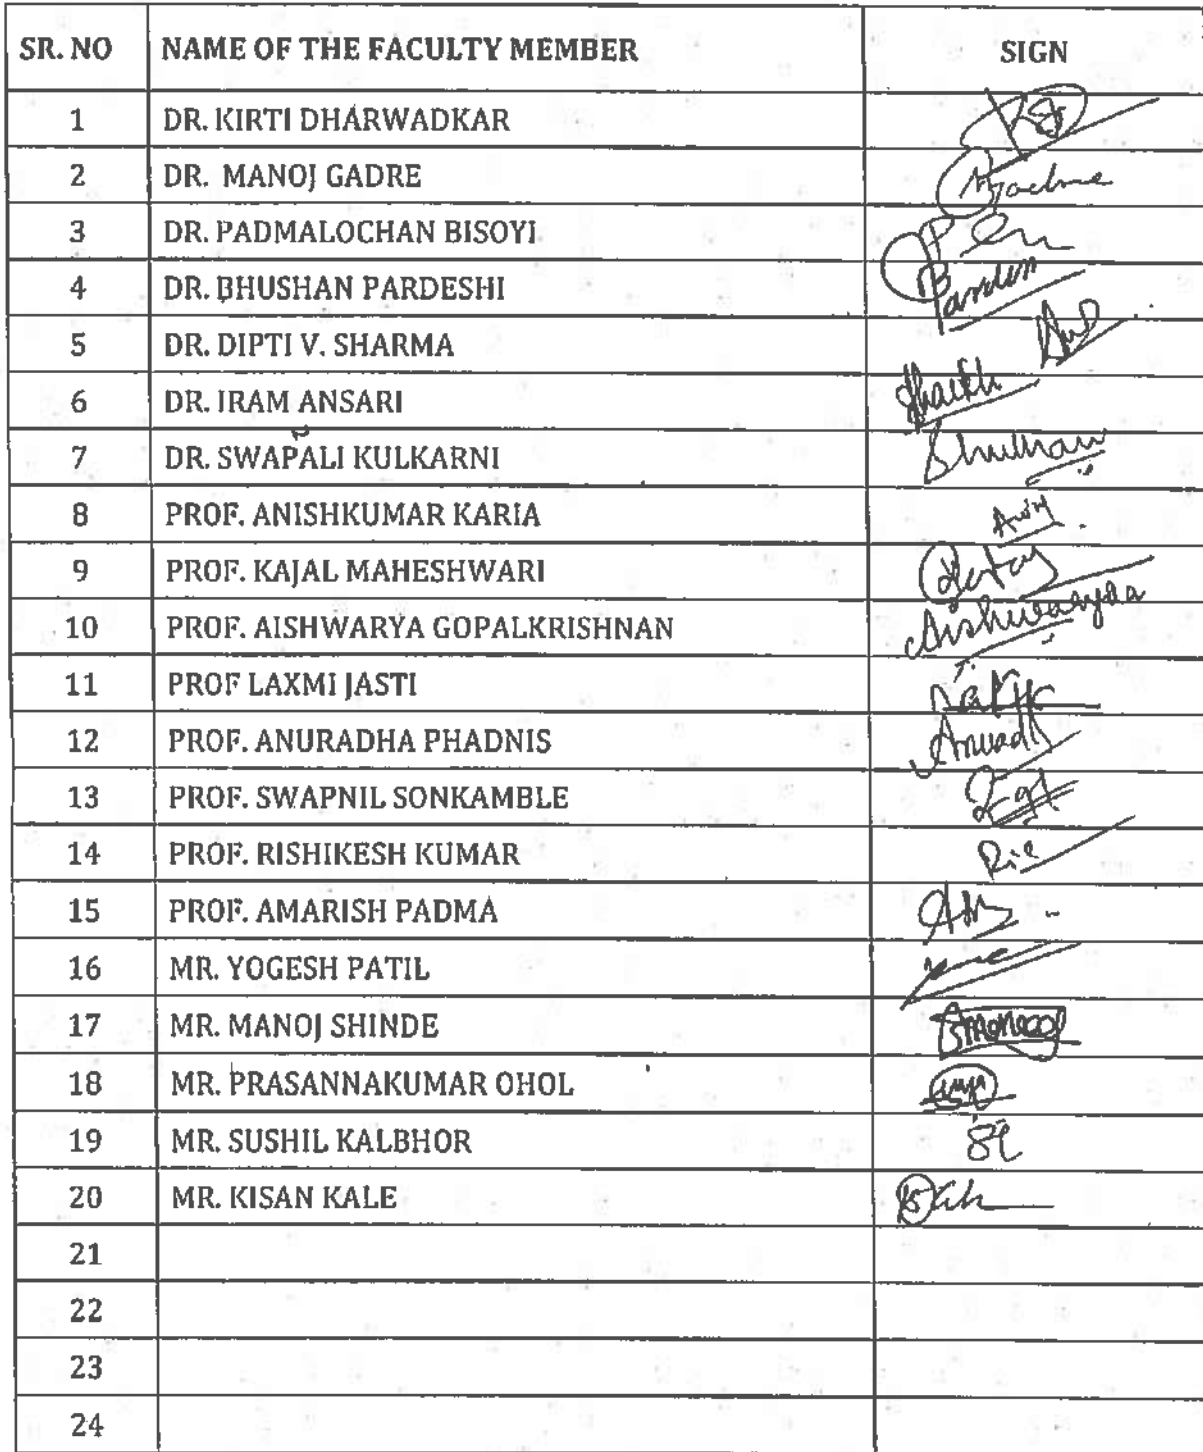 SR. NO NAME OF THE FACULTY MEMBER SIGN
1 DR. KIRTI DHARWADKAR
2 DR. MANOJ GADRE
3 DR. PADMALOCHAN BISOYI
4 DR. BHUSHAN PARDESHI
5 DR. DIPTI V. SHARMA
6 DR. IRAM ANSARI Shaikh
7 DR. SWAPALI KULKARNI
8 PROF. ANISHKUMAR KARIA
9 PROF. KAJAL MAHESHWARI
10 PROF. AISHWARYA GOPALKRISHNAN Aishwaryaa
11 PROF LAXMI JASTI
12 PROF. ANURADHA PHADNIS
13 PROF. SWAPNIL SONKAMBLE
14 PROF. RISHIKESH KUMAR
15 PROF. AMARISH PADMA
16 MR. YOGESH PATIL
17 MR. MANOJ SHINDE
18 MR. PRASANNAKUMAR OHOL
19 MR. SUSHIL KALBHOR
20 MR. KISAN KALE
21
22
23
24